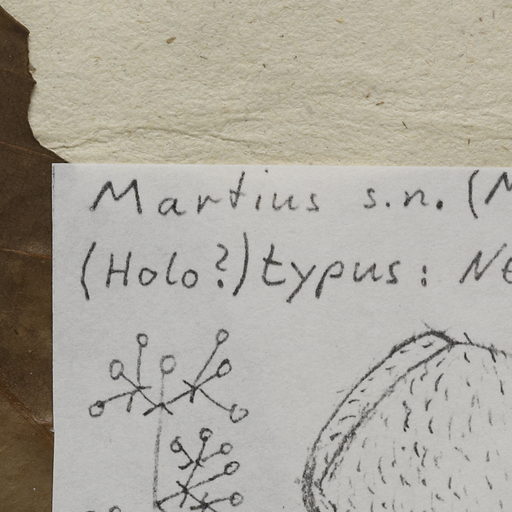 Martius s.n. (M
(Holo?)typus: Ne